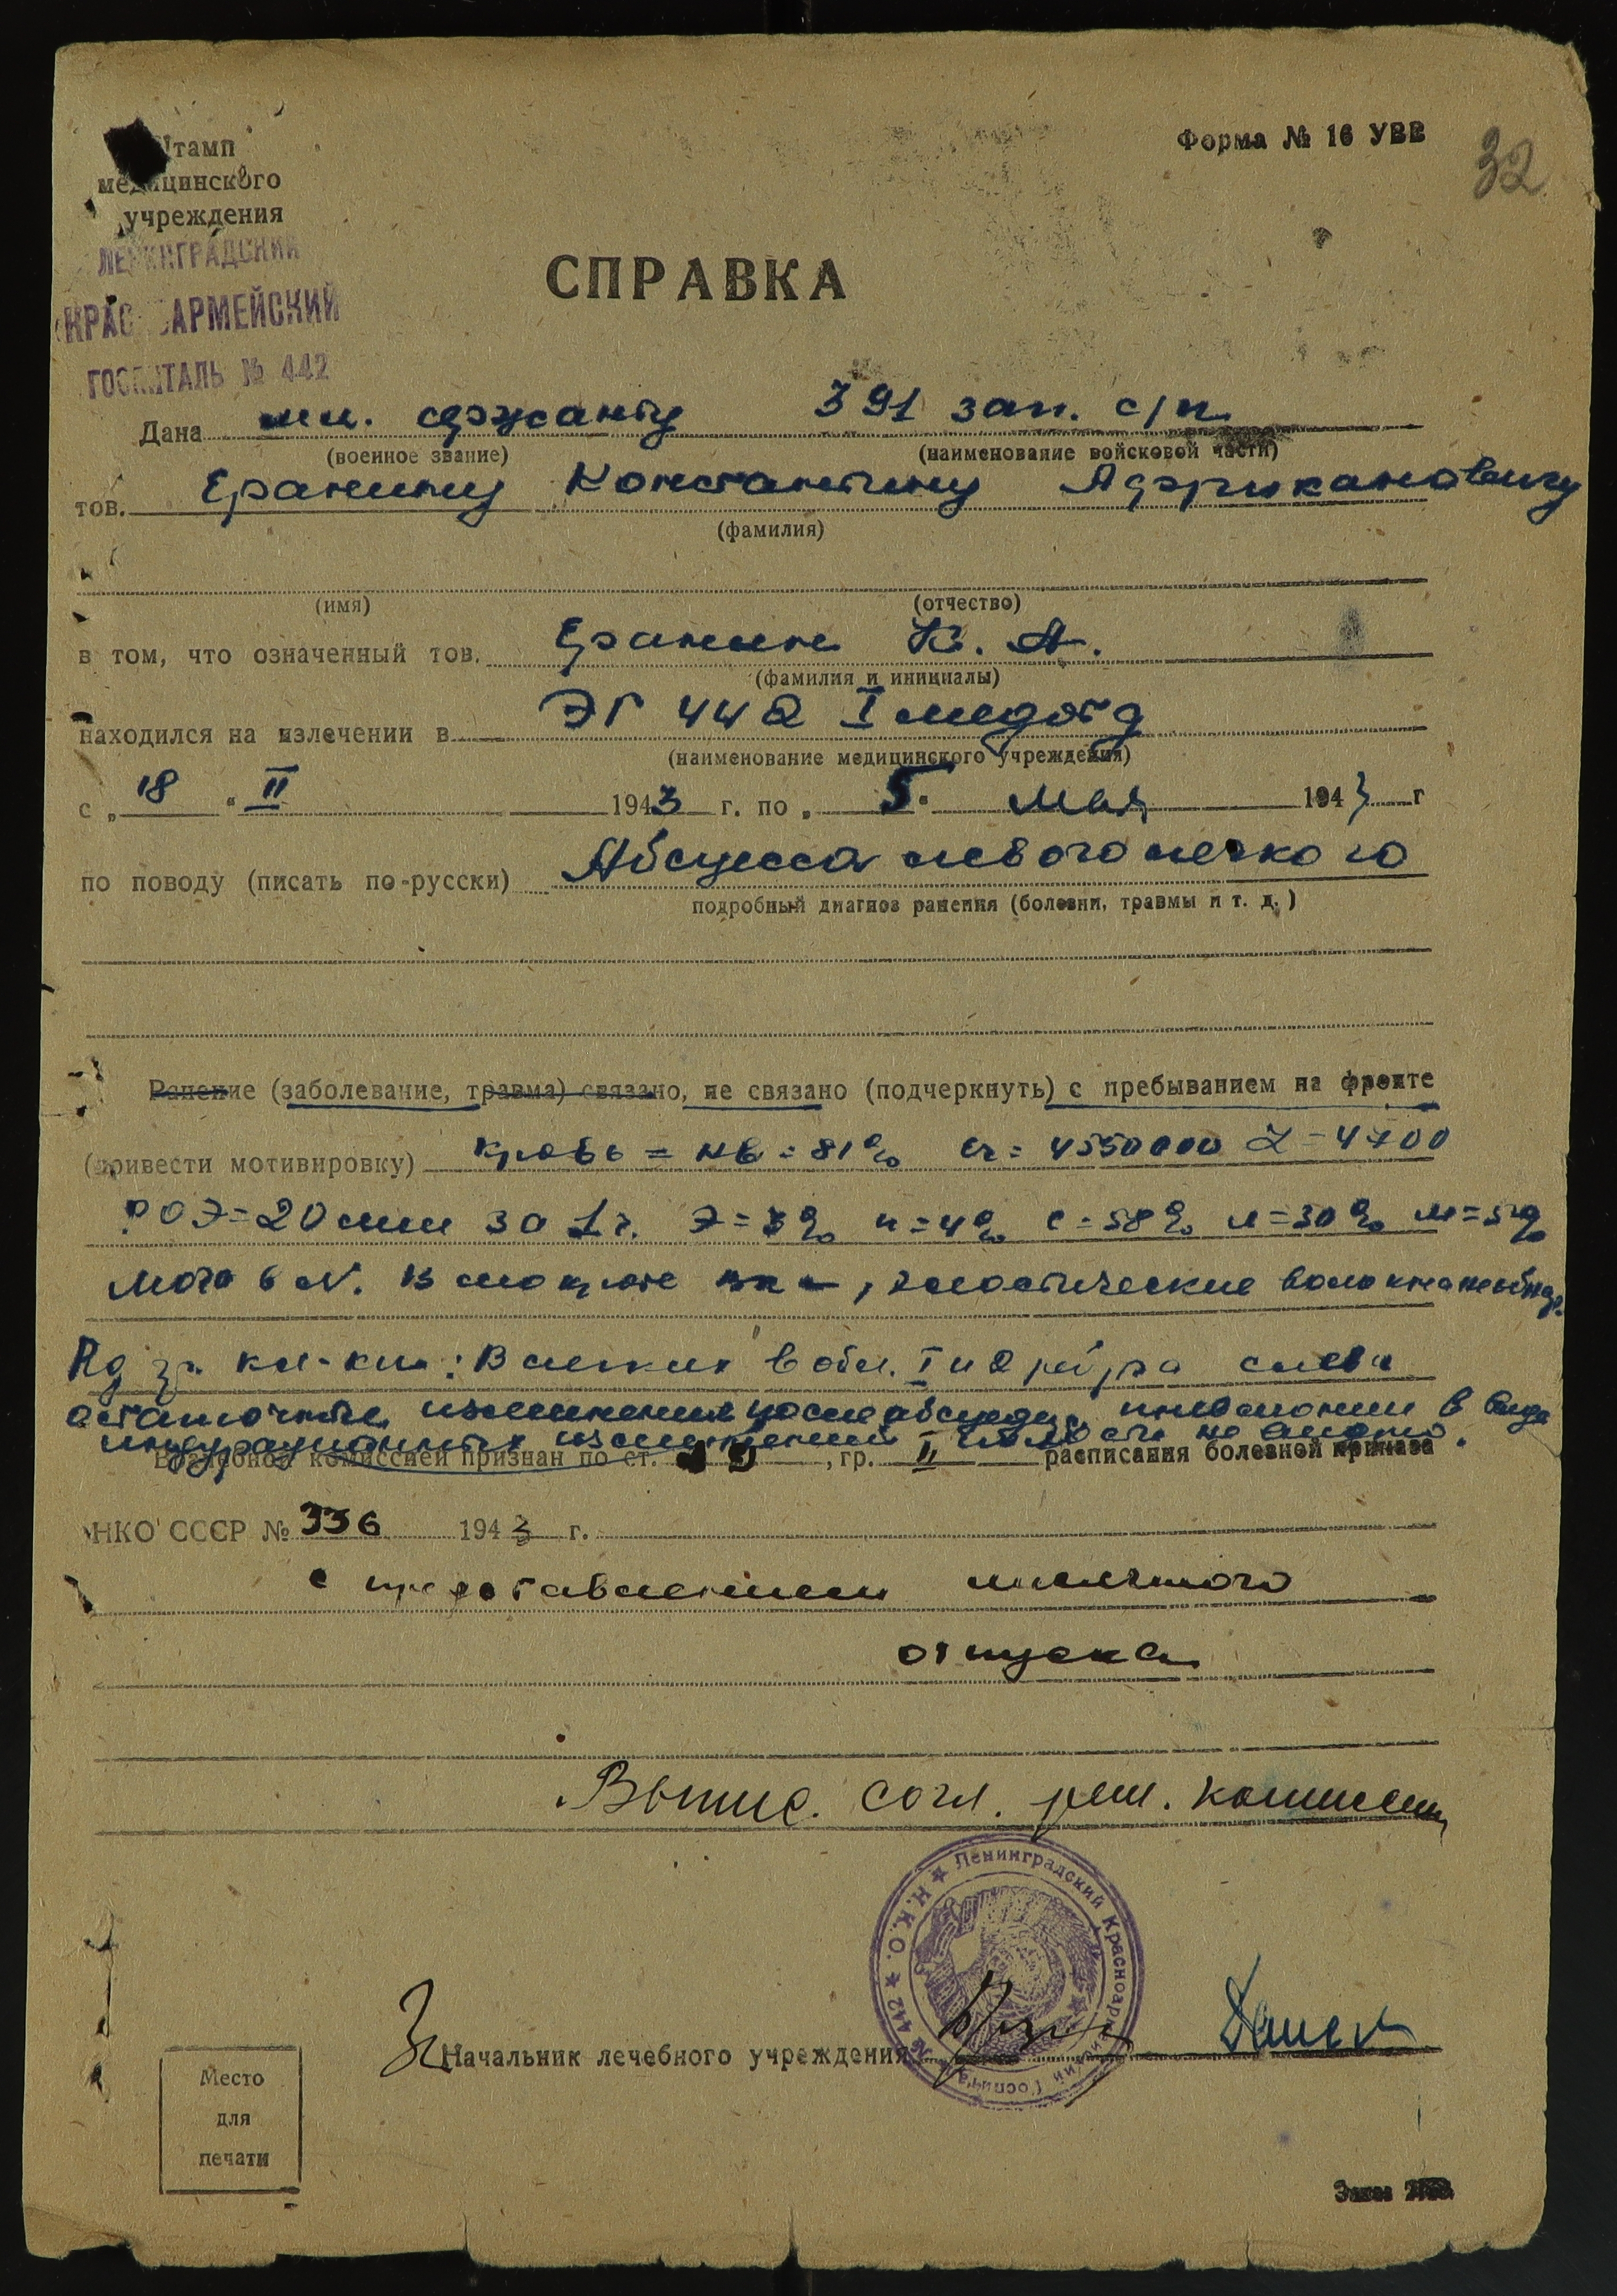 Штамп
медицинского
учреждения
Форма № 16 УВВ
32
ЛЕНИНГРАДСКИЙ
КРАСНОАРМЕЙСКИЙ
ГОСПИТАЛЬ № 442
СПРАВКА
Дана мл. сержанту 391 зап. с/п.
(военное звание) (наименование войсковой части)
тов. Еранину Константину Африкановичу
(фамилия)
(имя) (отчество)
в том, что означенный тов. Еранин К. А.
(фамилия и инициалы)
находился на излечении в ЭГ 442 I медотд
(наименование медицинского учреждения)
с „18" II 1943 г. по „5" Мая 1943 г
по поводу (писать по-русски) Абсцесса левого легкого
подробный диагноз ранения (болезни, травмы и т. д.)
Ранение (заболевание, травма) связано, не связано (подчеркнуть) с пребыванием на фронте
(привести мотивировку) Кровь = Нв = 81% Er = 4550000 L = 4700
РОЭ = 20 мм за 1 ч. Э = 3% п = 4% с = 58% л = 30% м = 5%
Моча в N. В мокроте вк –, эластические волокна не обнар.
Rg гр. кл-ки: В легких в обл. I и 2 ребра слева
остаточные изменения после абсцедир. пневмонии в виде
индурационных изменений полости не видно.
Врачебной комиссией признан по ст. , гр. II расписания болезней приказа
НКО СССР № 336 1943 г.
с предоставлением месячного
отпуска
Выпис. согл. реш. комиссии
Ленинградский Красноармейский Госпиталь № 442 ★ Н.К.О. ★
Начальник лечебного учреждения
Место
для
печати
Заказ